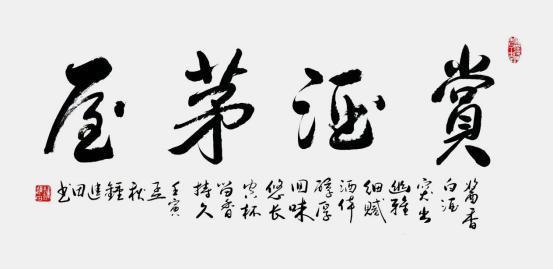 賞酒茅屋
醬香
白酒
突出
幽雅
细腻
酒体
醇厚
回味
悠长
空杯
留香
持久
壬寅
孟
秋
鍾
進
田
书